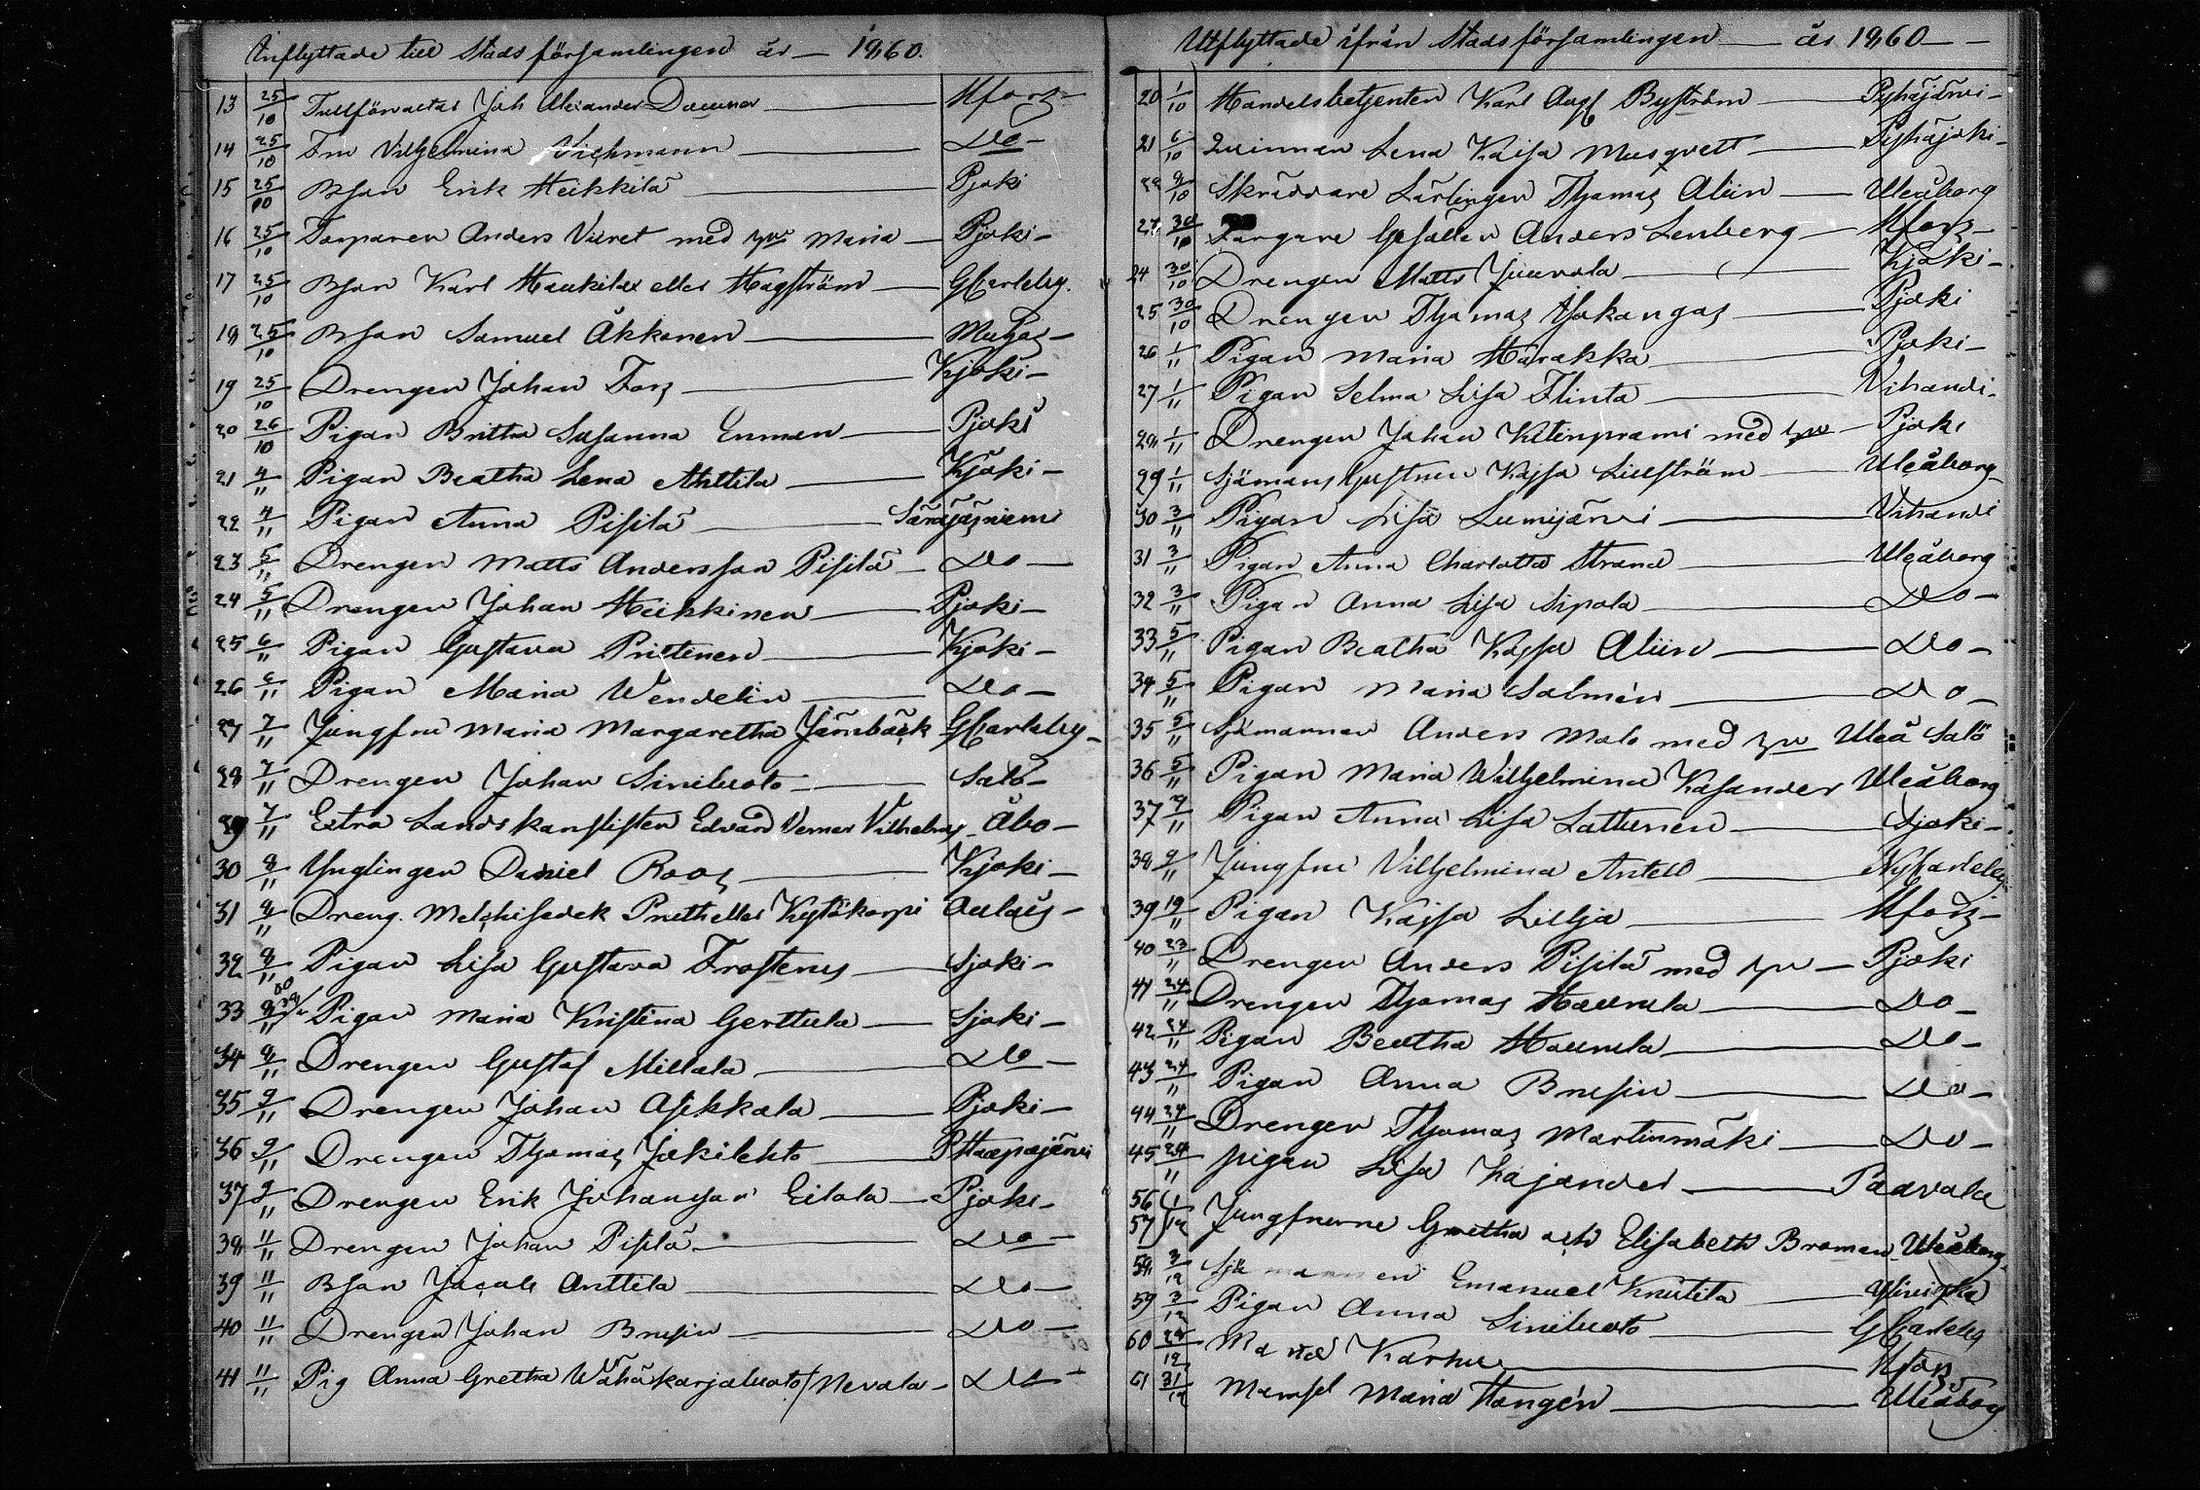 Inflyttade till Stads församlingen år — 1860.
13 25/10 Tullförvaltar Joh Alexander — Hfors
14 25/10 Fru Vilhelmina Vichmann — Do —
15 25/10 Bson Erik Heikkilä — Pjoki
16 25/10 Torparen Anders Viiret med hu Maria — Pjoki —
17 25/10 Bson Karl Haukilax eller Hagström — GCarleby.
18 25/10 Bson Samuel Åkkonen — Muhos —
19 25/10 Drengen Johan Fors — Kjoki —
20 26/10 Pigan Britha Susanna Enman — Pjoki
21 4/11 Pigan Beatha Lena Anttila — Kjoki —
22 4/11 Pigan Anna Pisilä — Säräjsniemi
23 5/11 Drengen Matts Andersson Pisilä — Do —
24 5/11 Drengen Johan Heikkinen — Pjoki —
25 6/11 Pigan Gustava Pristenen — Kjoki —
26 6/11 Pigan Maria Wendelin — Do —
27 7/11 Jungfru Maria Margaretha Järnbäck GCarleby —
28 7/11 Drengen Johan Siniluoto — Salo —
29 7/11 Extra Landskanslisten Edvard Verner Vilhelms — Åbo —
30 8/11 Ynglingen Daniel Roos — Kjoki —
31 8/11 Dreng. Melchisedek Prethelles Kystökorpi Aulais —
32 8/11 Pigan Lisa Gustava Frostenus — Sjoki —
33 8/11 Pigan Maria Kristina Gerttula — Sjoki —
34 8/11 Drengen Gustaf Millala — Do —
35 9/11 Drengen Johan Asikkala — Pjoki —
36 9/11 Drengen Thomas Jokilehto — PHaapajärvi
37 9/11 Drengen Erik Johansson Eilola — Pjoki —
38 11/11 Drengen Johan Pisilä — Do —
39 11/11 Bson Jacob Anttila — Do —
40 11/11 Drengen Johan Brusin — Do —
41 11/11 Pig Anna Gretha Wähäkarjaluoto / Nevala — Do —
Utflyttade ifrån Stads församlingen — år 1860 —
20 1/10 Handelsbetjenten Karl Aug Byström — Pyhäjärvi —
21 6/10 Qvinnan Lena Kaisa Musqvett — Pyhäjoki —
22 9/10 Skräddare Lärlingen Thomas Aliin — Uleåborg
23 30/10 Färgare Gesällen Anders Lenberg — Hfors —
24 30/10 Drengen Matts Juuvola — Kjoki —
25 30/10 Drengen Thomas Hokangas — Pjoki
26 1/11 Pigan Maria Harakka — Pjoki —
27 1/11 Pigan Selma Lisa Flinta — Vihandi —
28 1/11 Drengen Johan Kitinprami med hu — Pjoki
29 1/11 Sjömans Hustrun Kajsa Liljström — Uleåborg —
30 3/11 Pigan Lisa Lumijärvi — Vihandi
31 3/11 Pigan Anna Charlotta Strand — Uleåborg
32 3/11 Pigan Anna Lisa Sipola — Do —
33 5/11 Pigan Beatha Kajsa Aliin — Do —
34 5/11 Pigan Maria Salmén — Do —
35 5/11 Sjömannen Anders Malo med hu Uleå Salo
36 5/11 Pigan Maria Wilhelmina Kasander Uleåborg
37 7/11 Pigan Anna Lisa Lattunen — Sjoki —
38 9/11 Jungfru Vilhelmina Antell — NyCarleby
39 19/11 Pigan Kajsa Lilja — Hfors —
40 23/11 Drengen Anders Pisilä med hu — Pjoki
41 24/11 Drengen Thomas Haurula — Do —
42 24/11 Pigan Beatha Haurula — Do —
43 24/11 Pigan Anna Brusin — Do —
44 24/11 Drengen Thomas Martinmäki — Do —
45 24/11 Pigan Lisa Kajander — Paavola
56 57 1/12 Jungfrurne Gretha och Elisabeth Broman Uleåborg
58 3/12 Sjömannen Emanuel Knutila
59 3/12 Pigan Anna Siniluoto — GCarleby
60 28/12 Karhu — Hfors
61 31/12 Mamsel Maria Hangén — Uleåborg